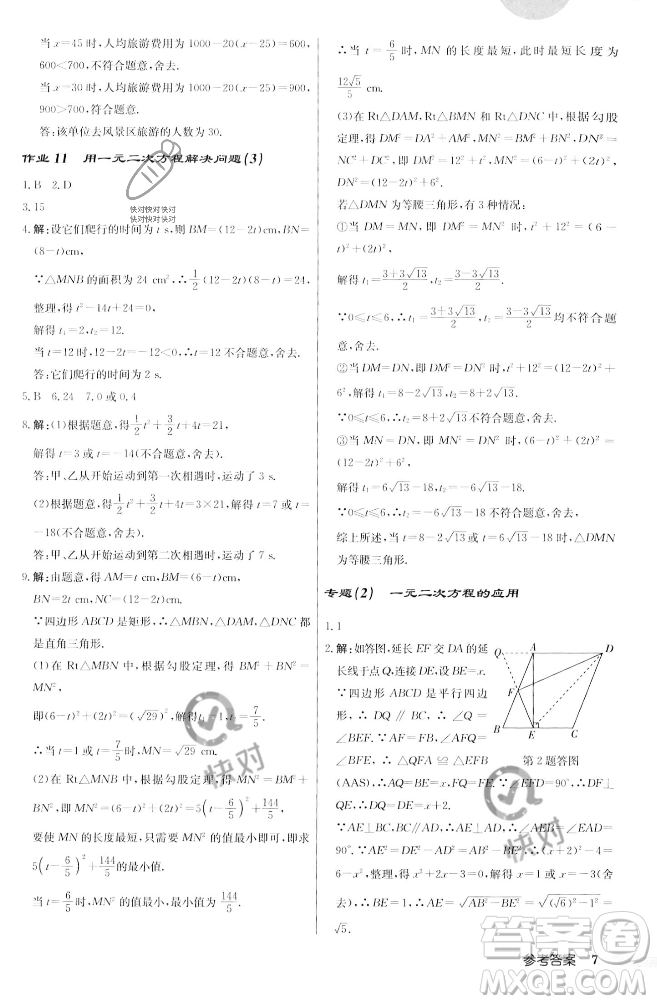 当 x=45 时,人均旅游费用为 1000-20(x-25)=600,
600<700,不符合题意,舍去.
当 x=30 时,人均旅游费用为 1000-20(x-25)=900,
900>700,符合题意.
答:该单位去风景区旅游的人数为 30.
作业 11 用一元二次方程解决问题(3)
1. B 2. D
3. 15
4. 解:设它们爬行的时间为 t s,则 BM=(12-2t)cm,BN=
(8-t)cm.
∵△MNB 的面积为 24 cm²,∴1/2(12-2t)(8-t)=24,
整理,得 t²-14t+24=0,
解得 t₁=2,t₂=12.
当 t=12 时,12-2t=12-24=-12(不合题意,舍去).
答:它们爬行的时间为 2 s.
5. B 6. 24 7. 0 或 0.4
8. 解:(1)根据题意,得 1/2 t²+3/2 t+4t=21,
解得 t=3 或 t=-14(不合题意,舍去).
答:甲、乙从开始运动到第一次相遇时,运动了 3 s.
(2)根据题意,得 1/2 t²+3/2 t+4t=3×21,解得 t=7 或 t=
-18(不合题意,舍去).
答:甲、乙从开始运动到第二次相遇时,运动了 7 s.
9. 解:由题意,得 AM=t cm,BM=(6-t)cm,
BN=2t cm,NC=(12-2t)cm.
∵四边形 ABCD 是矩形,∴△MBN、△DAM、△DNC 都
是直角三角形.
(1)在 Rt△MNB 中,根据勾股定理,得 BM²+BN²=
MN²,
即(6-t)²+(2t)²=(√29)²,解得 t₁=1,t₂=7/5,
∴当 t=1 或 t=7/5 时,MN=√29 cm.
(2)在 Rt△MNB 中,根据勾股定理,得 BM²+BN²=
MN²,即(6-t)²+(2t)²=MN²,∴MN²=5(t-6/5)²+144/5.
要使 MN 的长度最短,只需要 MN² 的值最小即可,即求
5(t-6/5)²+144/5 的最小值.
当 t=6/5 时,MN² 的值最小,MN² 的最小值为 144/5.
∴当 t=6/5 时,MN 的长度最短,此时最短长度为
12√5/5 cm.
(3)在 Rt△DAM、Rt△BMN 和 Rt△DNC 中,根据勾股
定理,得 DM²=DA²+AM²,MN²=BM²+BN²,DN²=
DC²+NC²,∴DM²=t²+12²,MN²=(6-t)²+(2t)²,
DN²=(12-2t)²+6².
若△DMN 为等腰三角形,有 3 种情况:
①当 DM=MN 时,∴DM²=MN²,即 t²+12²=(6-
t)²+(2t)²,
解得 t₁=3+3√13/2,t₂=3-3√13/2,
∵0≤t≤6,∴t₁=3+3√13/2,t₂=3-3√13/2均不符合题意,
舍去.
②当 DM=DN 时,∴DM²=DN²,即 t²+12²=(12-2t)²+
6²,解得 t₁=8-2√13,t₂=8+2√13,
∵0≤t≤6,∴t=8+2√13不符合题意,舍去.
③当 MN=DN 时,∴MN²=DN²,即(6-t)²+(2t)²=
(12-2t)²+6²,
解得 t₁=6√13-18,t₂=-6√13-18,
∵0≤t≤6,∴t=-6√13-18 不符合题意,舍去.
综上所述,当 t=8-2√13或 t=6√13-18 时,△DMN
为等腰三角形.
专题(2) 一元二次方程的应用
1. 1
2. 解:如答图,延长 EF 交 DA 的延
长线于点 Q,连接 DE,设 BE=x.
∵四边形 ABCD 是平行四边
形,∴DQ∥BC,∴∠Q=
∠BEF. ∴△QFA≌△BEF
(AAS),∴AQ=BE=x.∵∠EFD=90°,∴DF⊥
QE,∴DQ=DE=x+2.
∵AE⊥BC,BC∥AD,∴AE⊥AD,∴∠AEB=∠EAD=
90°.∵AE²=DE²-AD²=AB²-BE²,∴(x+2)²-4=
6-x²,整理得 2x²+4x-6=0,解得 x=1 或 x=-3(舍
去),∴BE=1,∴AE=√AB²-BE²=√(√6)²-1²=
√5.
Q A D F B E C
第 2 题答图
快对快对快对
快对快对快对
快对
快对
答案圈
MXQE.COM
参考答案 7